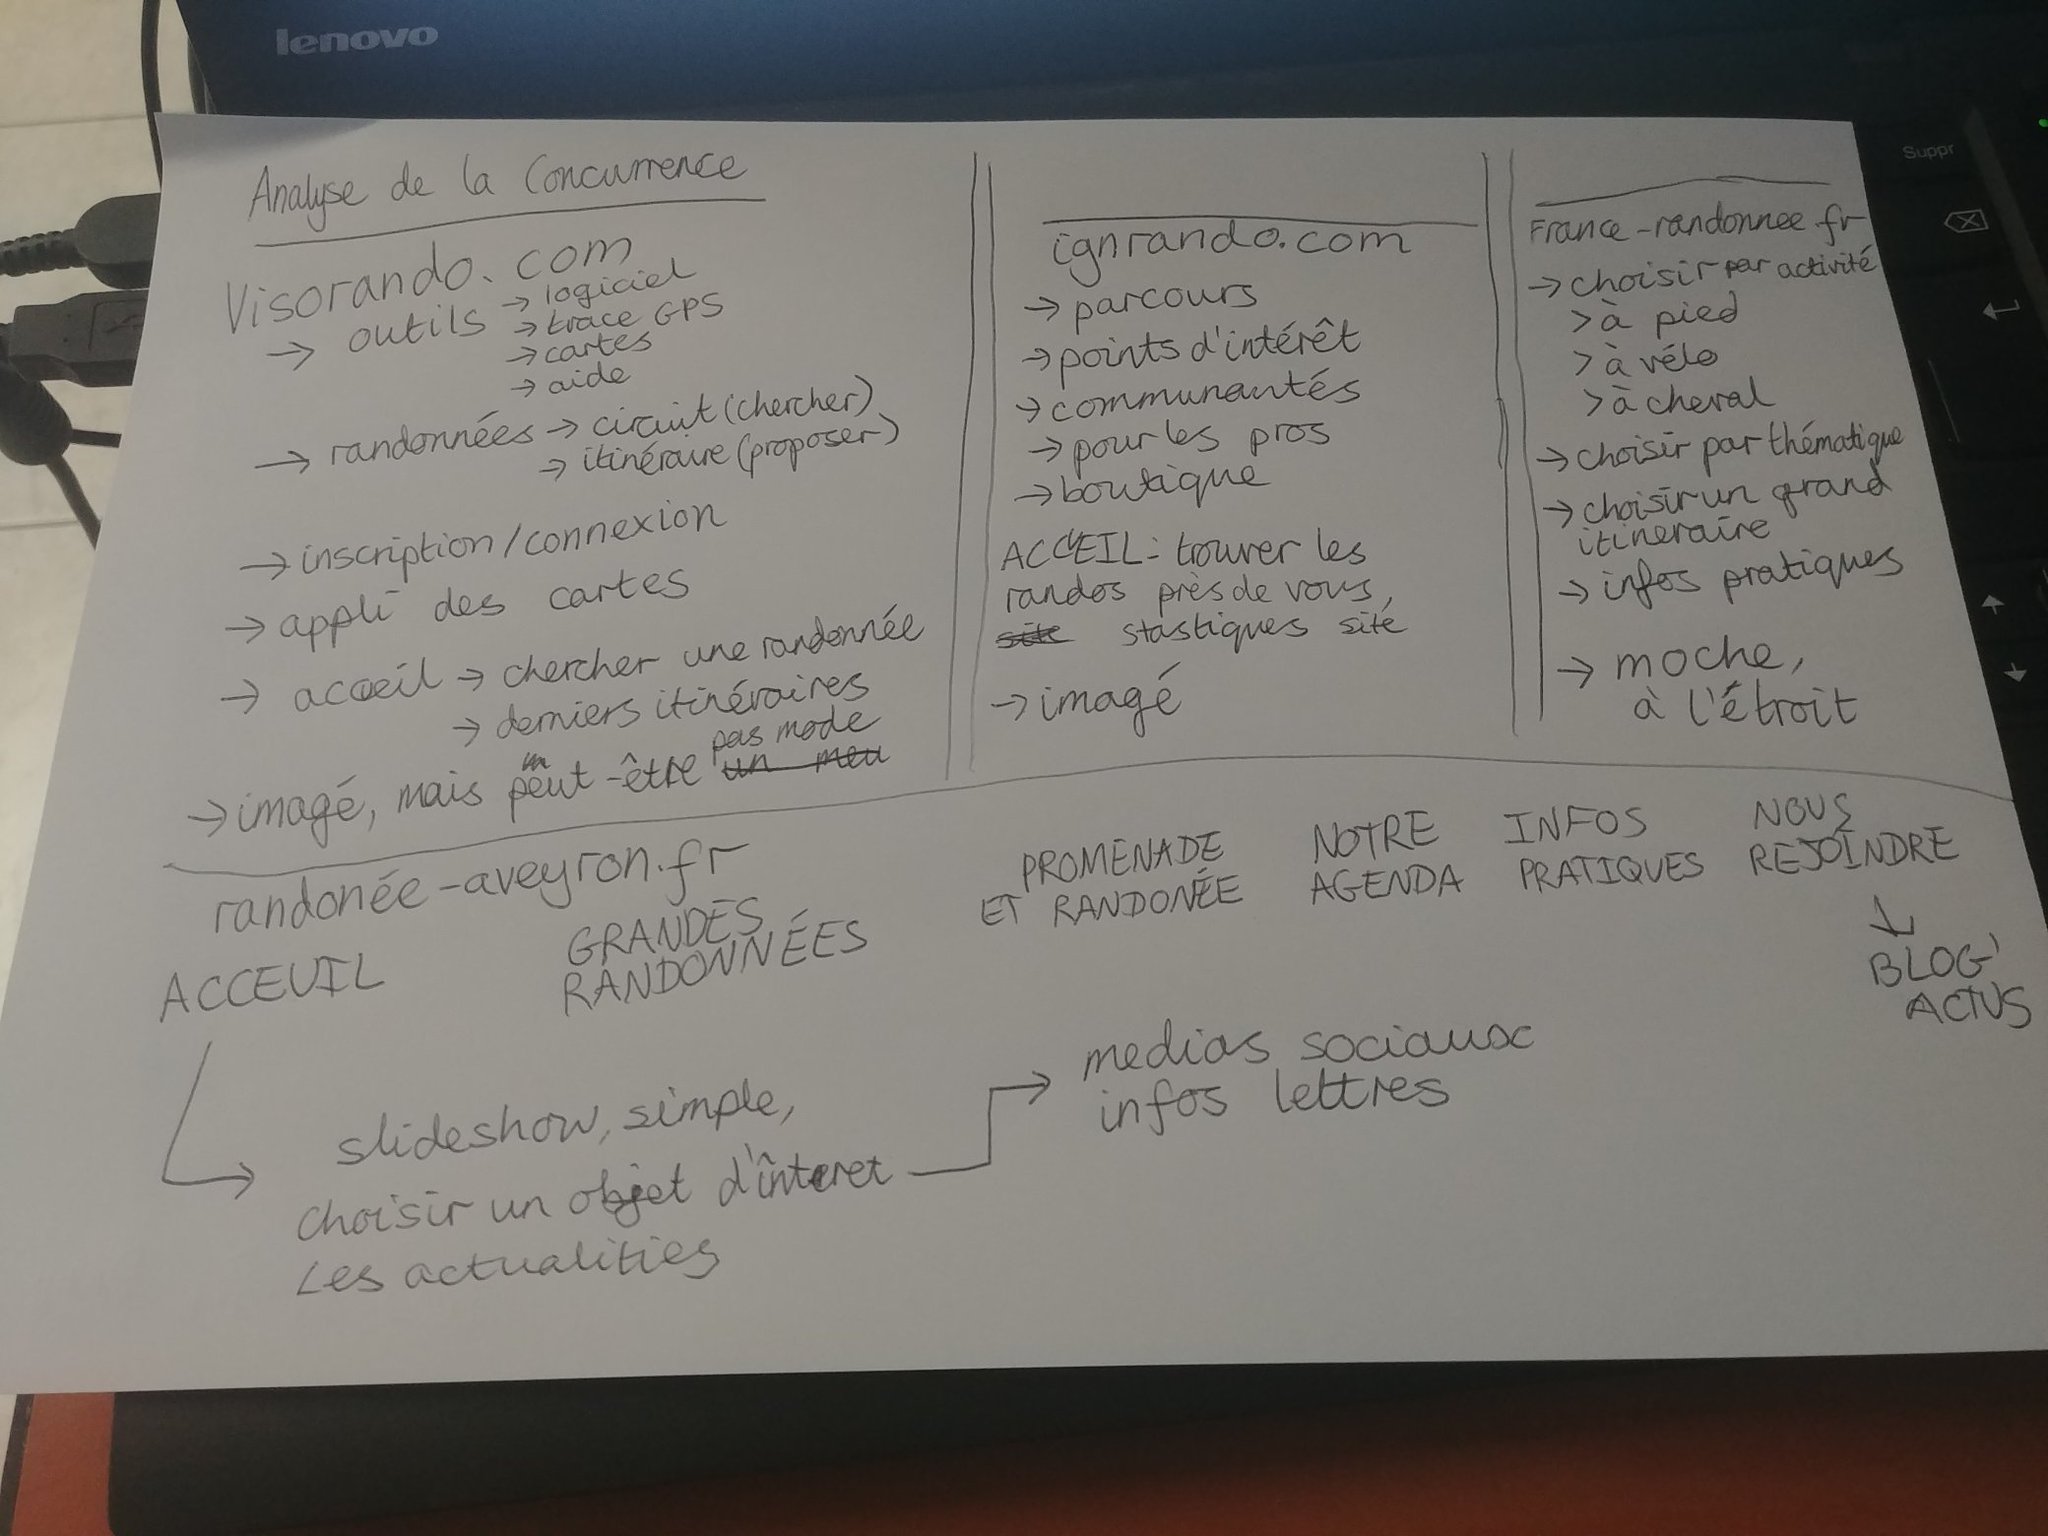 lenovo
Suppr
Analyse de la Concurrence
Visorando.com
→ outils → logiciel
→ trace GPS
→ cartes
→ aide
→ randonnées → circuit (chercher)
→ itinéraire (proposer)
→ inscription/connexion
→ appli des cartes
→ acceil → chercher une randonnée
→ derniers itinéraires
pas mode
→ imagé, mais peut-être un meu
ignrando.com
→ parcours
→ points d'intérêt
→ communautés
→ pour les pros
→ boutique
ACCEIL: trouver les
randos près de vous,
site stastiques site
→ imagé
France-randonnee.fr
→ choisir par activité
> à pied
> à vélo
> à cheval
→ choisir par thématique
→ choisir un grand
itineraire
→ infos pratiques
→ moche,
à l'étroit
randonée-aveyron.fr
ACCEUIL
GRANDES
RANDONNÉES
PROMENADE
ET RANDONÉE
NOTRE
AGENDA
INFOS
PRATIQUES
NOUS
REJOINDRE
↓
BLOG'
ACTUS
slideshow, simple,
choisir un objet d'intéret → medias sociaux
infos lettres
Les actualities